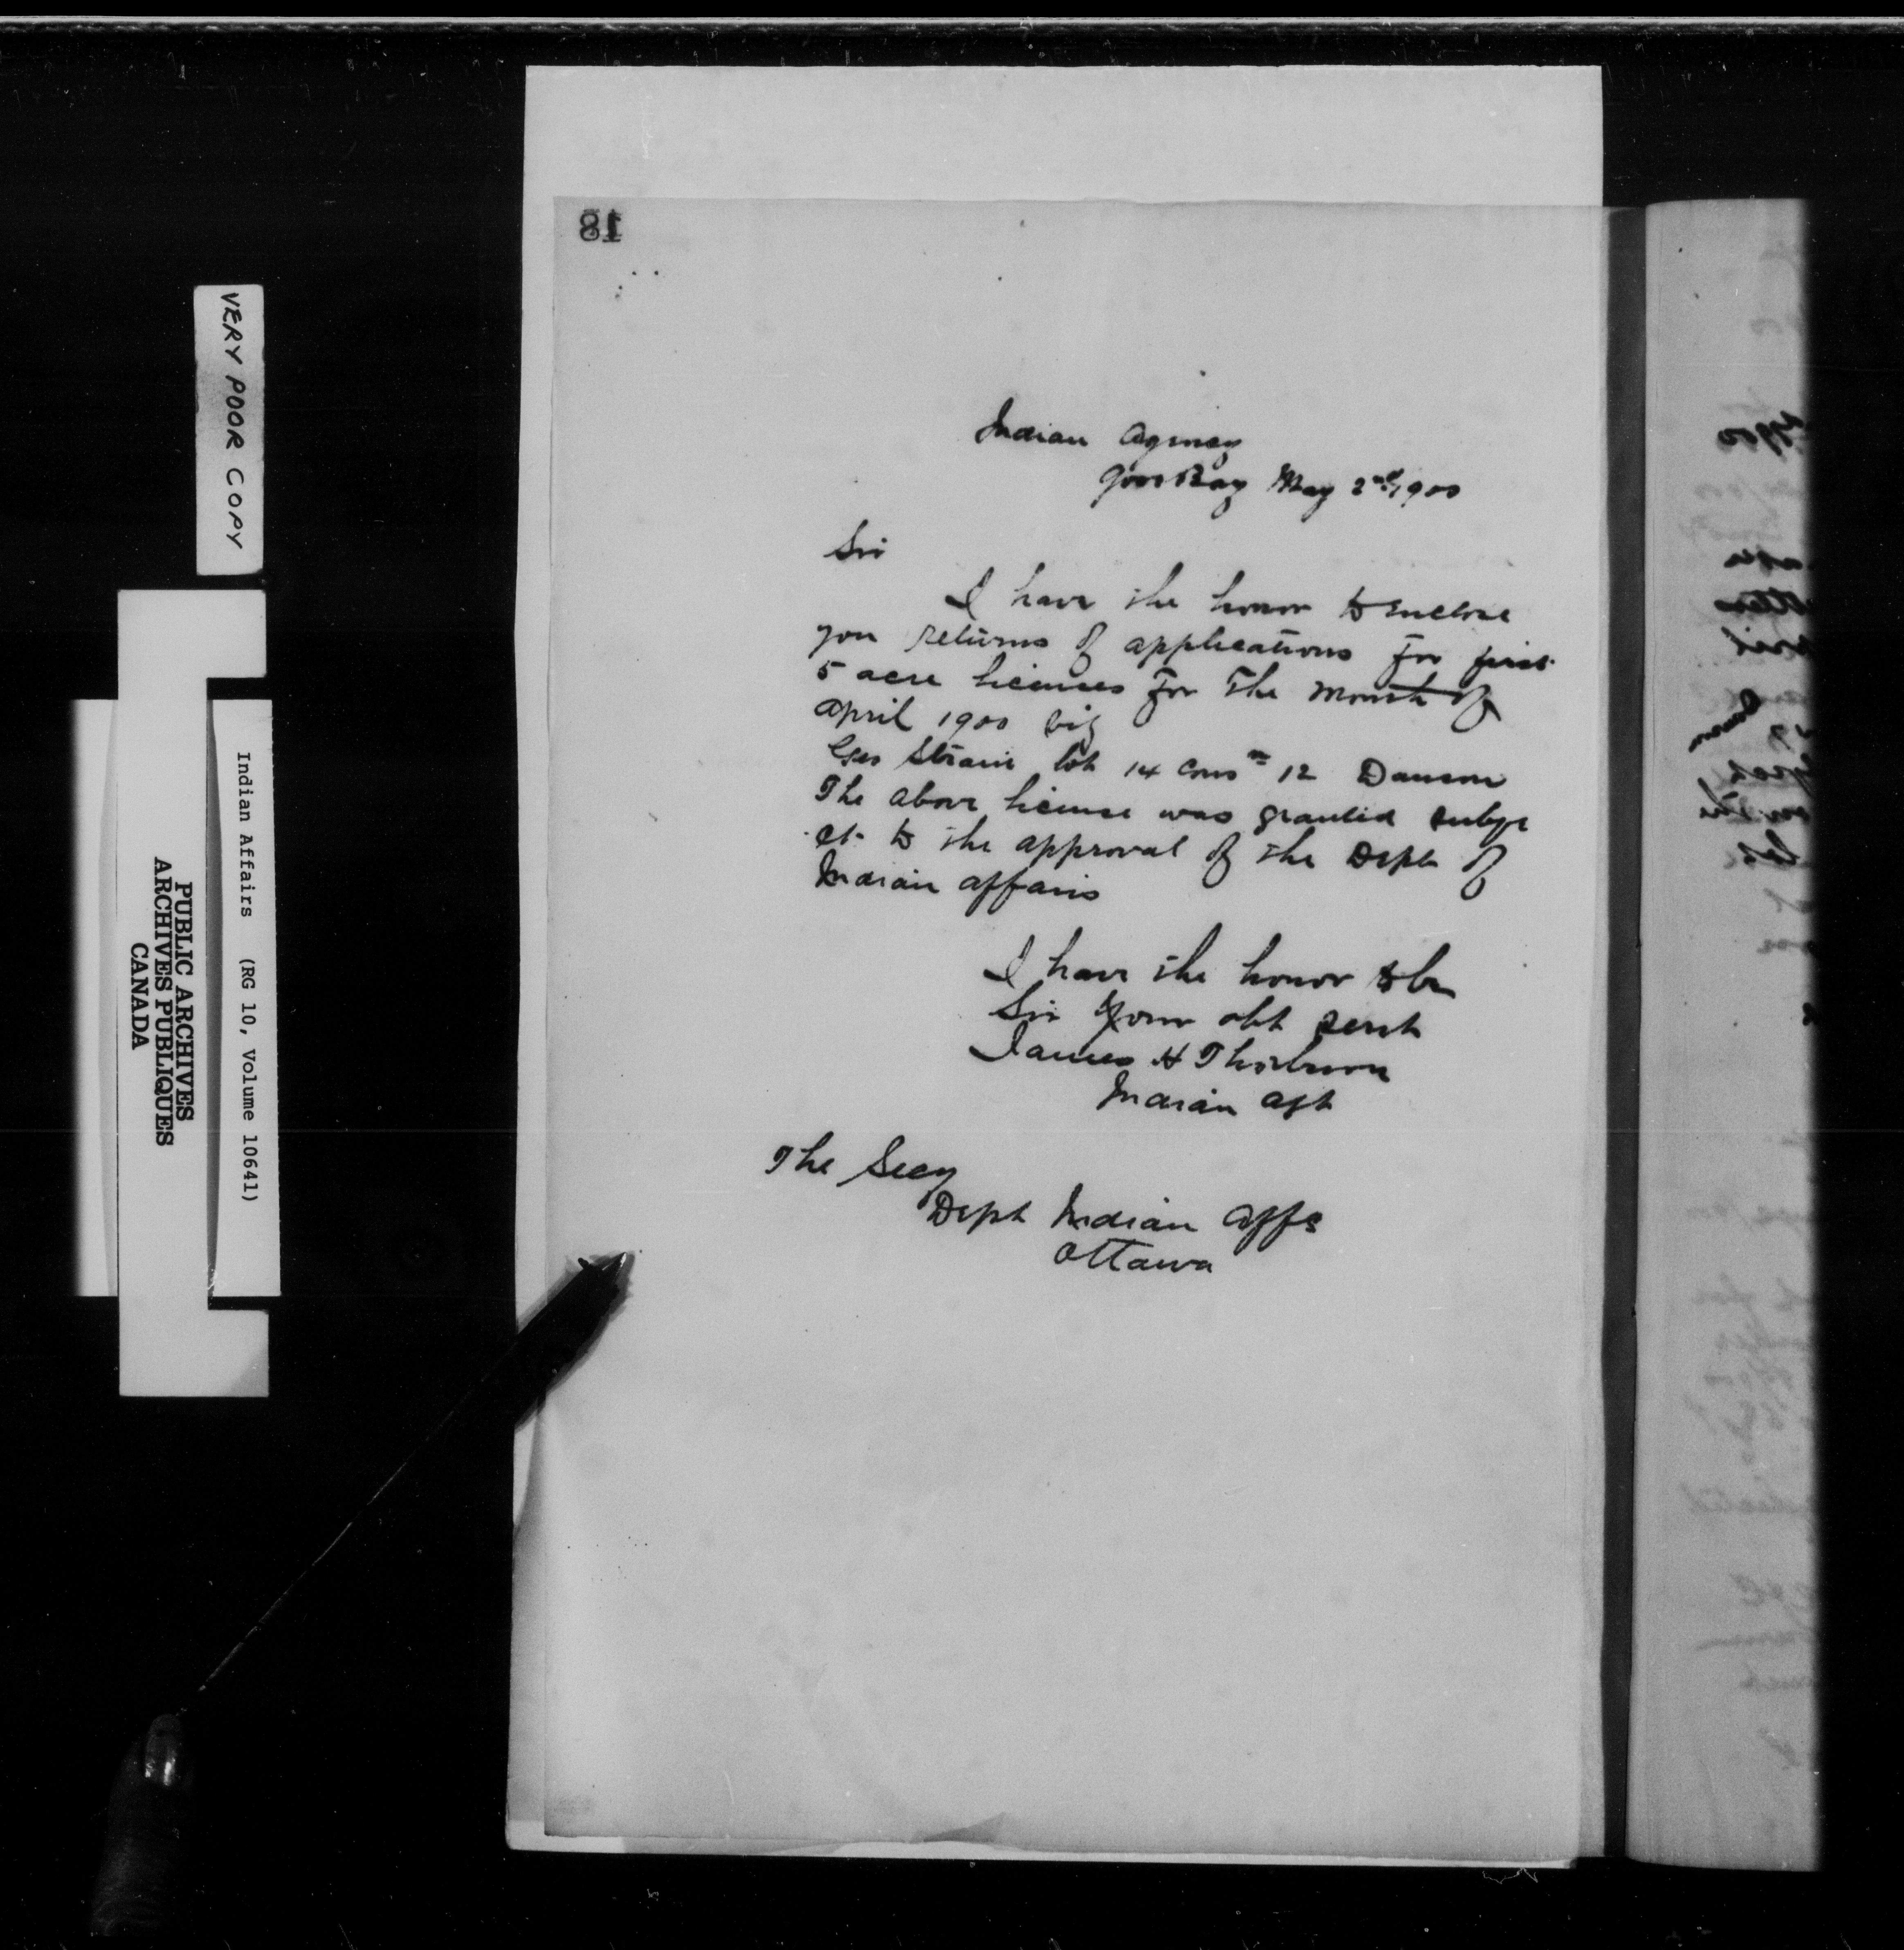 18
Indian Agency
Gore Bay May 2nd 1900
Sir
I have the honor to enclose
you returns of applications for first
5 acre licenses for the month of
April 1900 viz
Geo Strain lot 14 Conn 12 Dawson
The above license was granted subje
ct to the approval of the Dept of
Indian affairs
I have the honor to be
Sir your obt servt
James H Thorburn
Indian Agt
The Secy
Dept Indian Affs
Ottawa
VERY POOR COPY
Indian Affairs (RG 10, Volume 10641)
PUBLIC ARCHIVES
ARCHIVES PUBLIQUES
CANADA